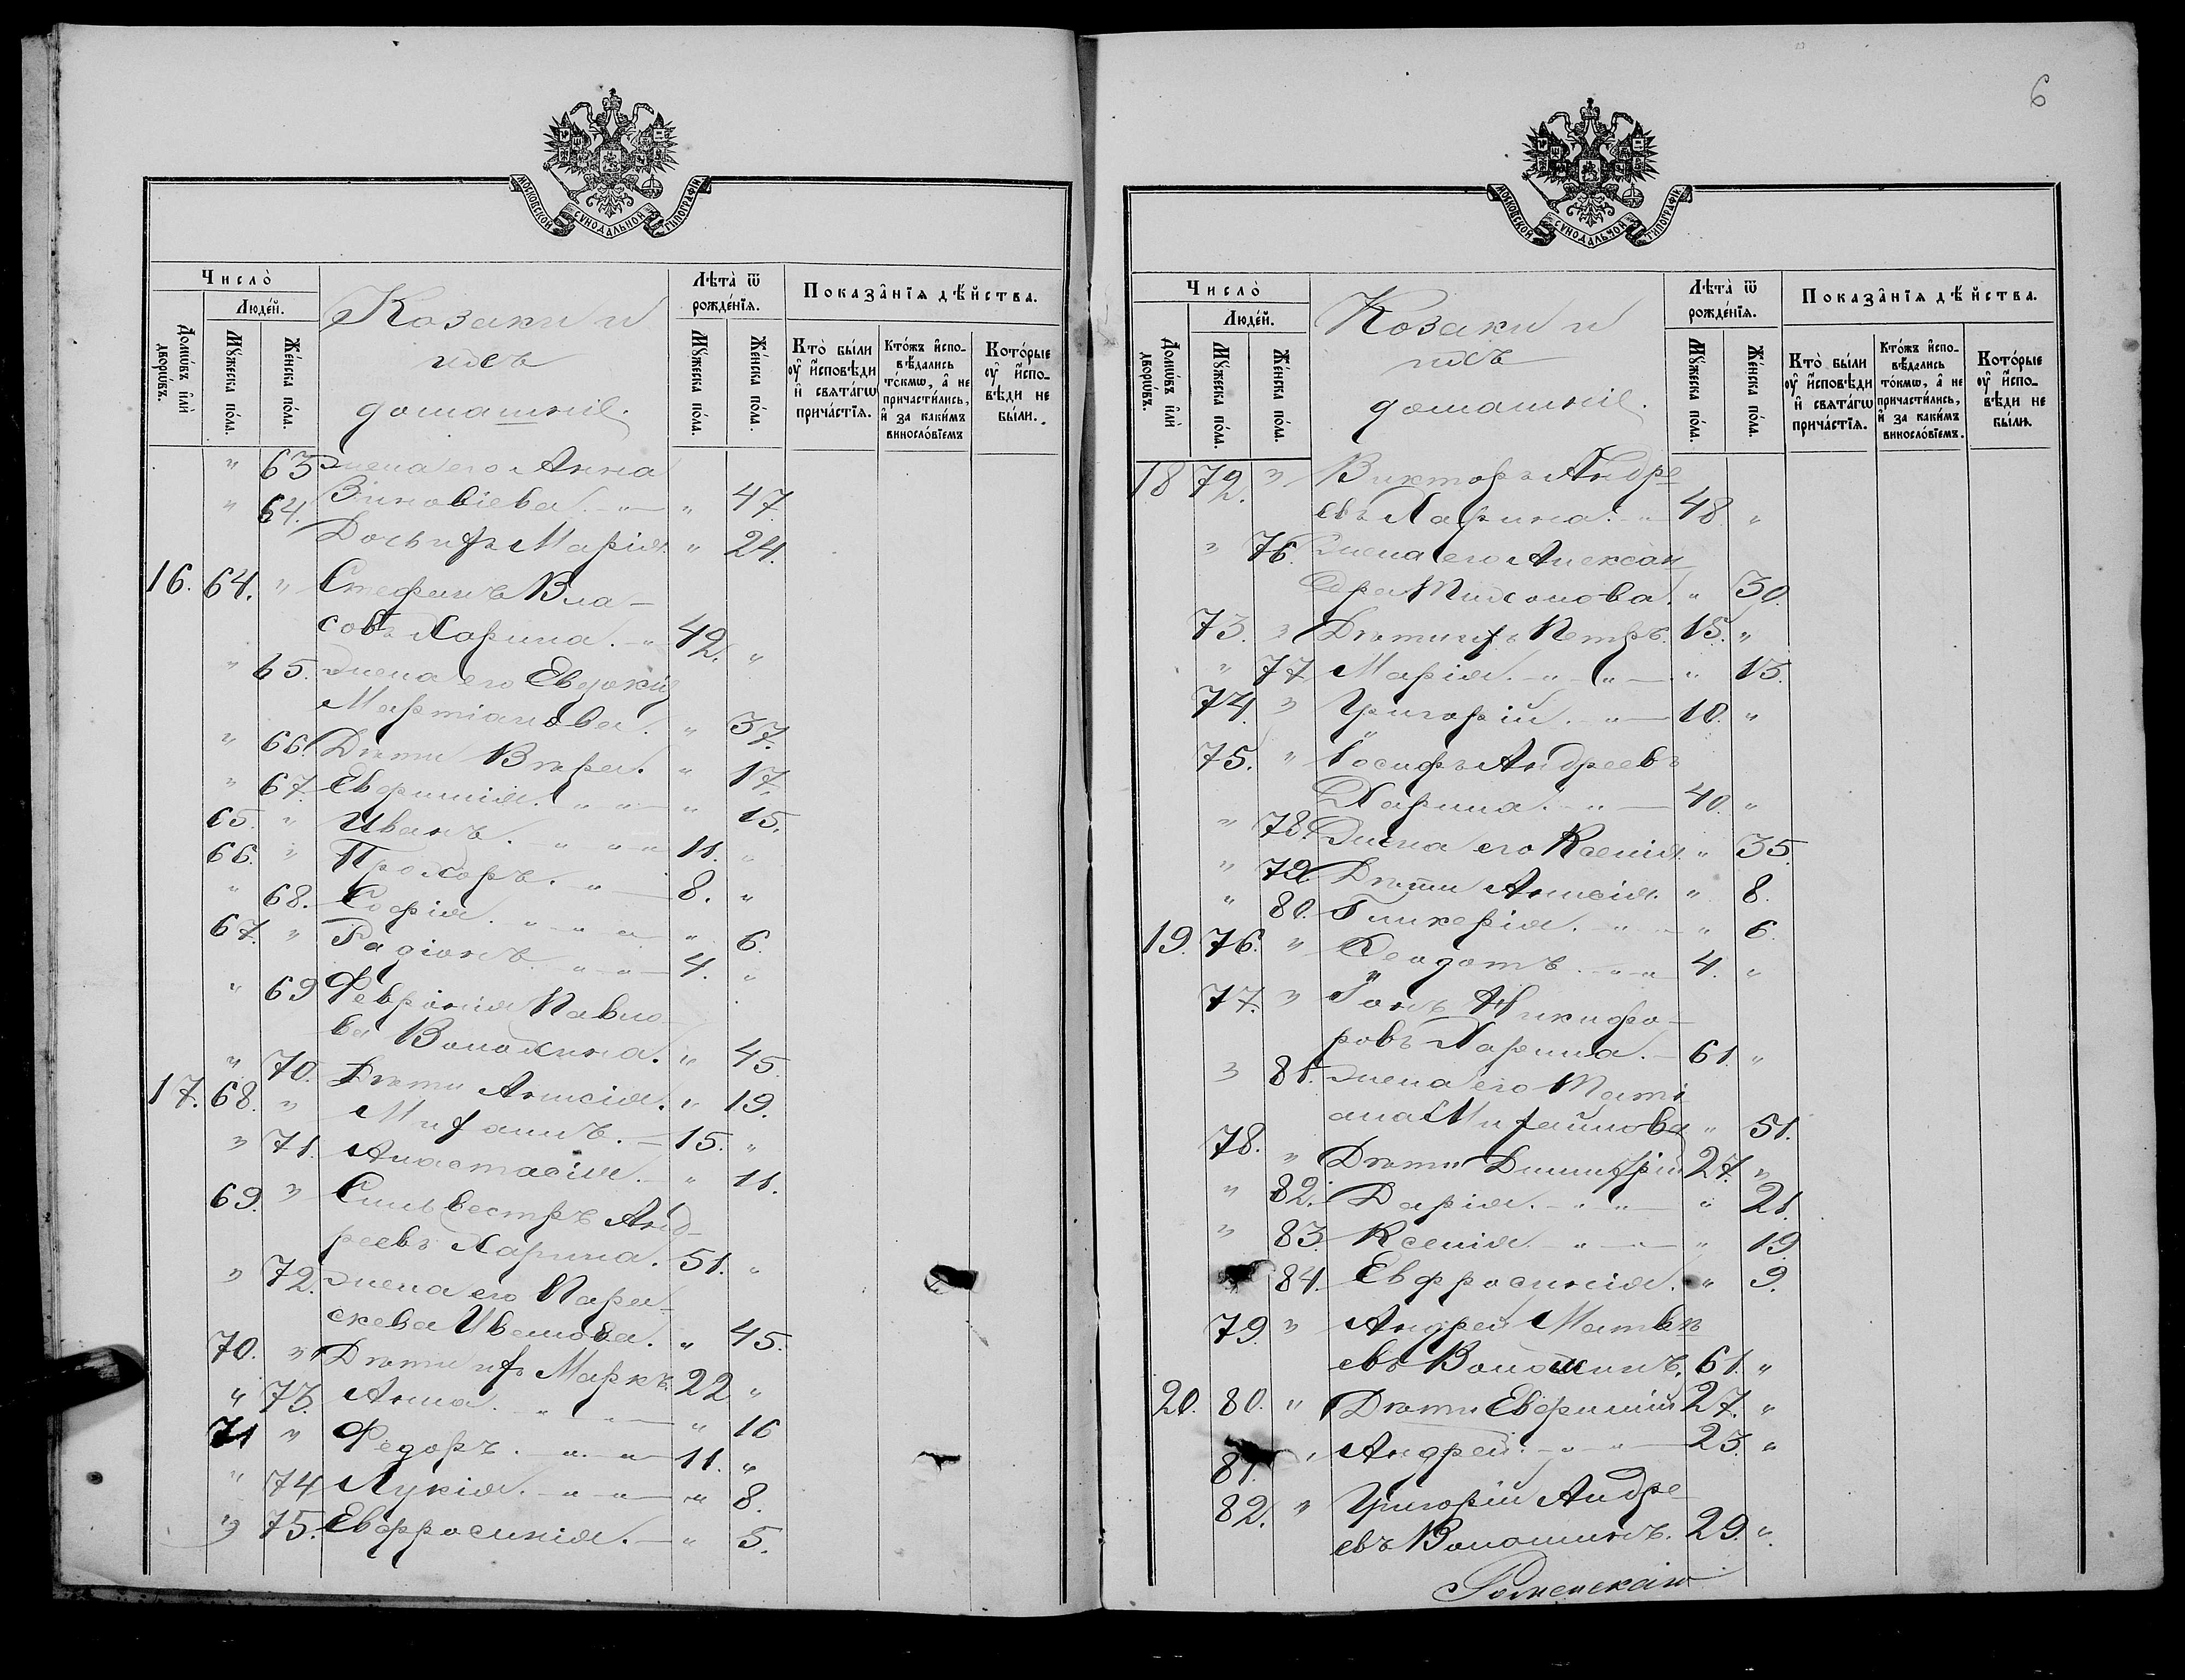 6
МОСКОВСКОЙ СѴНОДАЛЬНОЙ ТИПОГРАФІИ
Число̀
Людéй.
Домѡ́въ и҆лѝ дворѡ́въ.
Мꙋ́жеска по́ла.
Же́нска по́ла.
Козаки и
ихъ
домашніе.
Лѣта̀ ѿ рожде́нїѧ.
Мꙋ́жеска по́ла.
Же́нска по́ла.
Показа̑нїѧ дѣ́йства.
Кто̀ бы́ли оу҆ и҆́сповѣди и҆ свѧта́гѡ прича́стїѧ.
Кто́жъ и҆сповѣ́дались то́кмѡ, а҆ не причасти́лись, и҆ за каки́мъ виносло́вїемъ
Кото́рые оу҆ и҆́сповѣди не бы́ли.
" 63 Жена его Анна
Зиновіева. - " - " 47.
" 64. Дочь ихъ Марія. " 24.
16. 64. " Стефанъ Вла-
совъ Харина. - " 42. "
" 65. Жена его Евдокія
Мартіанова. " 37.
" 66. Дѣти Вѣра. " 17.
" 67. Евфимія. " " - " 15.
65. " Иванъ. " " " 11. "
66. " Прохоръ. " - 8. "
" 68. Софія. " " " " 6.
67. " Радіонъ. " " - 4. "
" 69 Февронія Павло-
ва Волохина. " 45.
" 70. Дѣти Анисія. " 19.
17. 68. " Михаилъ. - 15. "
" 71. Анастасія. - " 11.
69. " Сильвестръ Анд-
реевъ Харина. 51. "
" 72. Жена его Пара-
скева Иванова. " 45.
70. " Дѣти ихъ Маркъ 22 "
" 73. Анна. " " - " 16
71 " Федоръ. - " - " 11. "
" 74 Лукія. - " - " - " 8.
" 75. Евфросинія. - " 5.
МОСКОВСКОЙ СѴНОДАЛЬНОЙ ТИПОГРАФІИ
Число̀
Людéй.
Домѡ́въ и҆лѝ дворѡ́въ.
Мꙋ́жеска по́ла.
Же́нска по́ла.
Козаки и
ихъ
домашніе.
Лѣта̀ ѿ рожде́нїѧ.
Мꙋ́жеска по́ла.
Же́нска по́ла.
Показа̑нїѧ дѣ́йства.
Кто̀ бы́ли оу҆ и҆́сповѣди и҆ свѧта́гѡ прича́стїѧ.
Кто́жъ и҆сповѣ́дались то́кмѡ, а҆ не причасти́лись, и҆ за каки́мъ виносло́вїемъ.
Кото́рые оу҆ и҆́сповѣди не бы́ли.
18 72. " Викторъ Андре
евъ Харина. - " 48. "
" 76. Жена его Алексан
дра Тихонова. " 30.
73. " Дѣти ихъ Петръ. 15. "
" 77. Марія. - " - " - " 13.
74. " Григорій. - " - 10. "
75. " Іосифъ Андреевъ
Харина. - " - 40. "
" 78. Жена его Ксенія. " 35.
" 79. Дѣти Анисія. " 8.
" 80. Гликерія. - " - " 6.
19. 76. " Феодотъ. - " - " 4. "
77. " Іонъ Никифо-
ровъ Харина. - 61. "
" 81. Жена его Тати
ана Михайлова " 51.
78. " Дѣти Димитрій 27. "
" 82. Дарія. - " - " - " 21.
" 83. Ксенія. - " - " 19.
84. Евфросинія. " 9.
79. " Андрей Матвѣ
евъ Волошинъ. 61. "
20. 80. " Дѣти Евфимій 27. "
81. " Андрей. - " - " 23. "
82. " Григорій Андре
евъ Волошинъ. 29. "